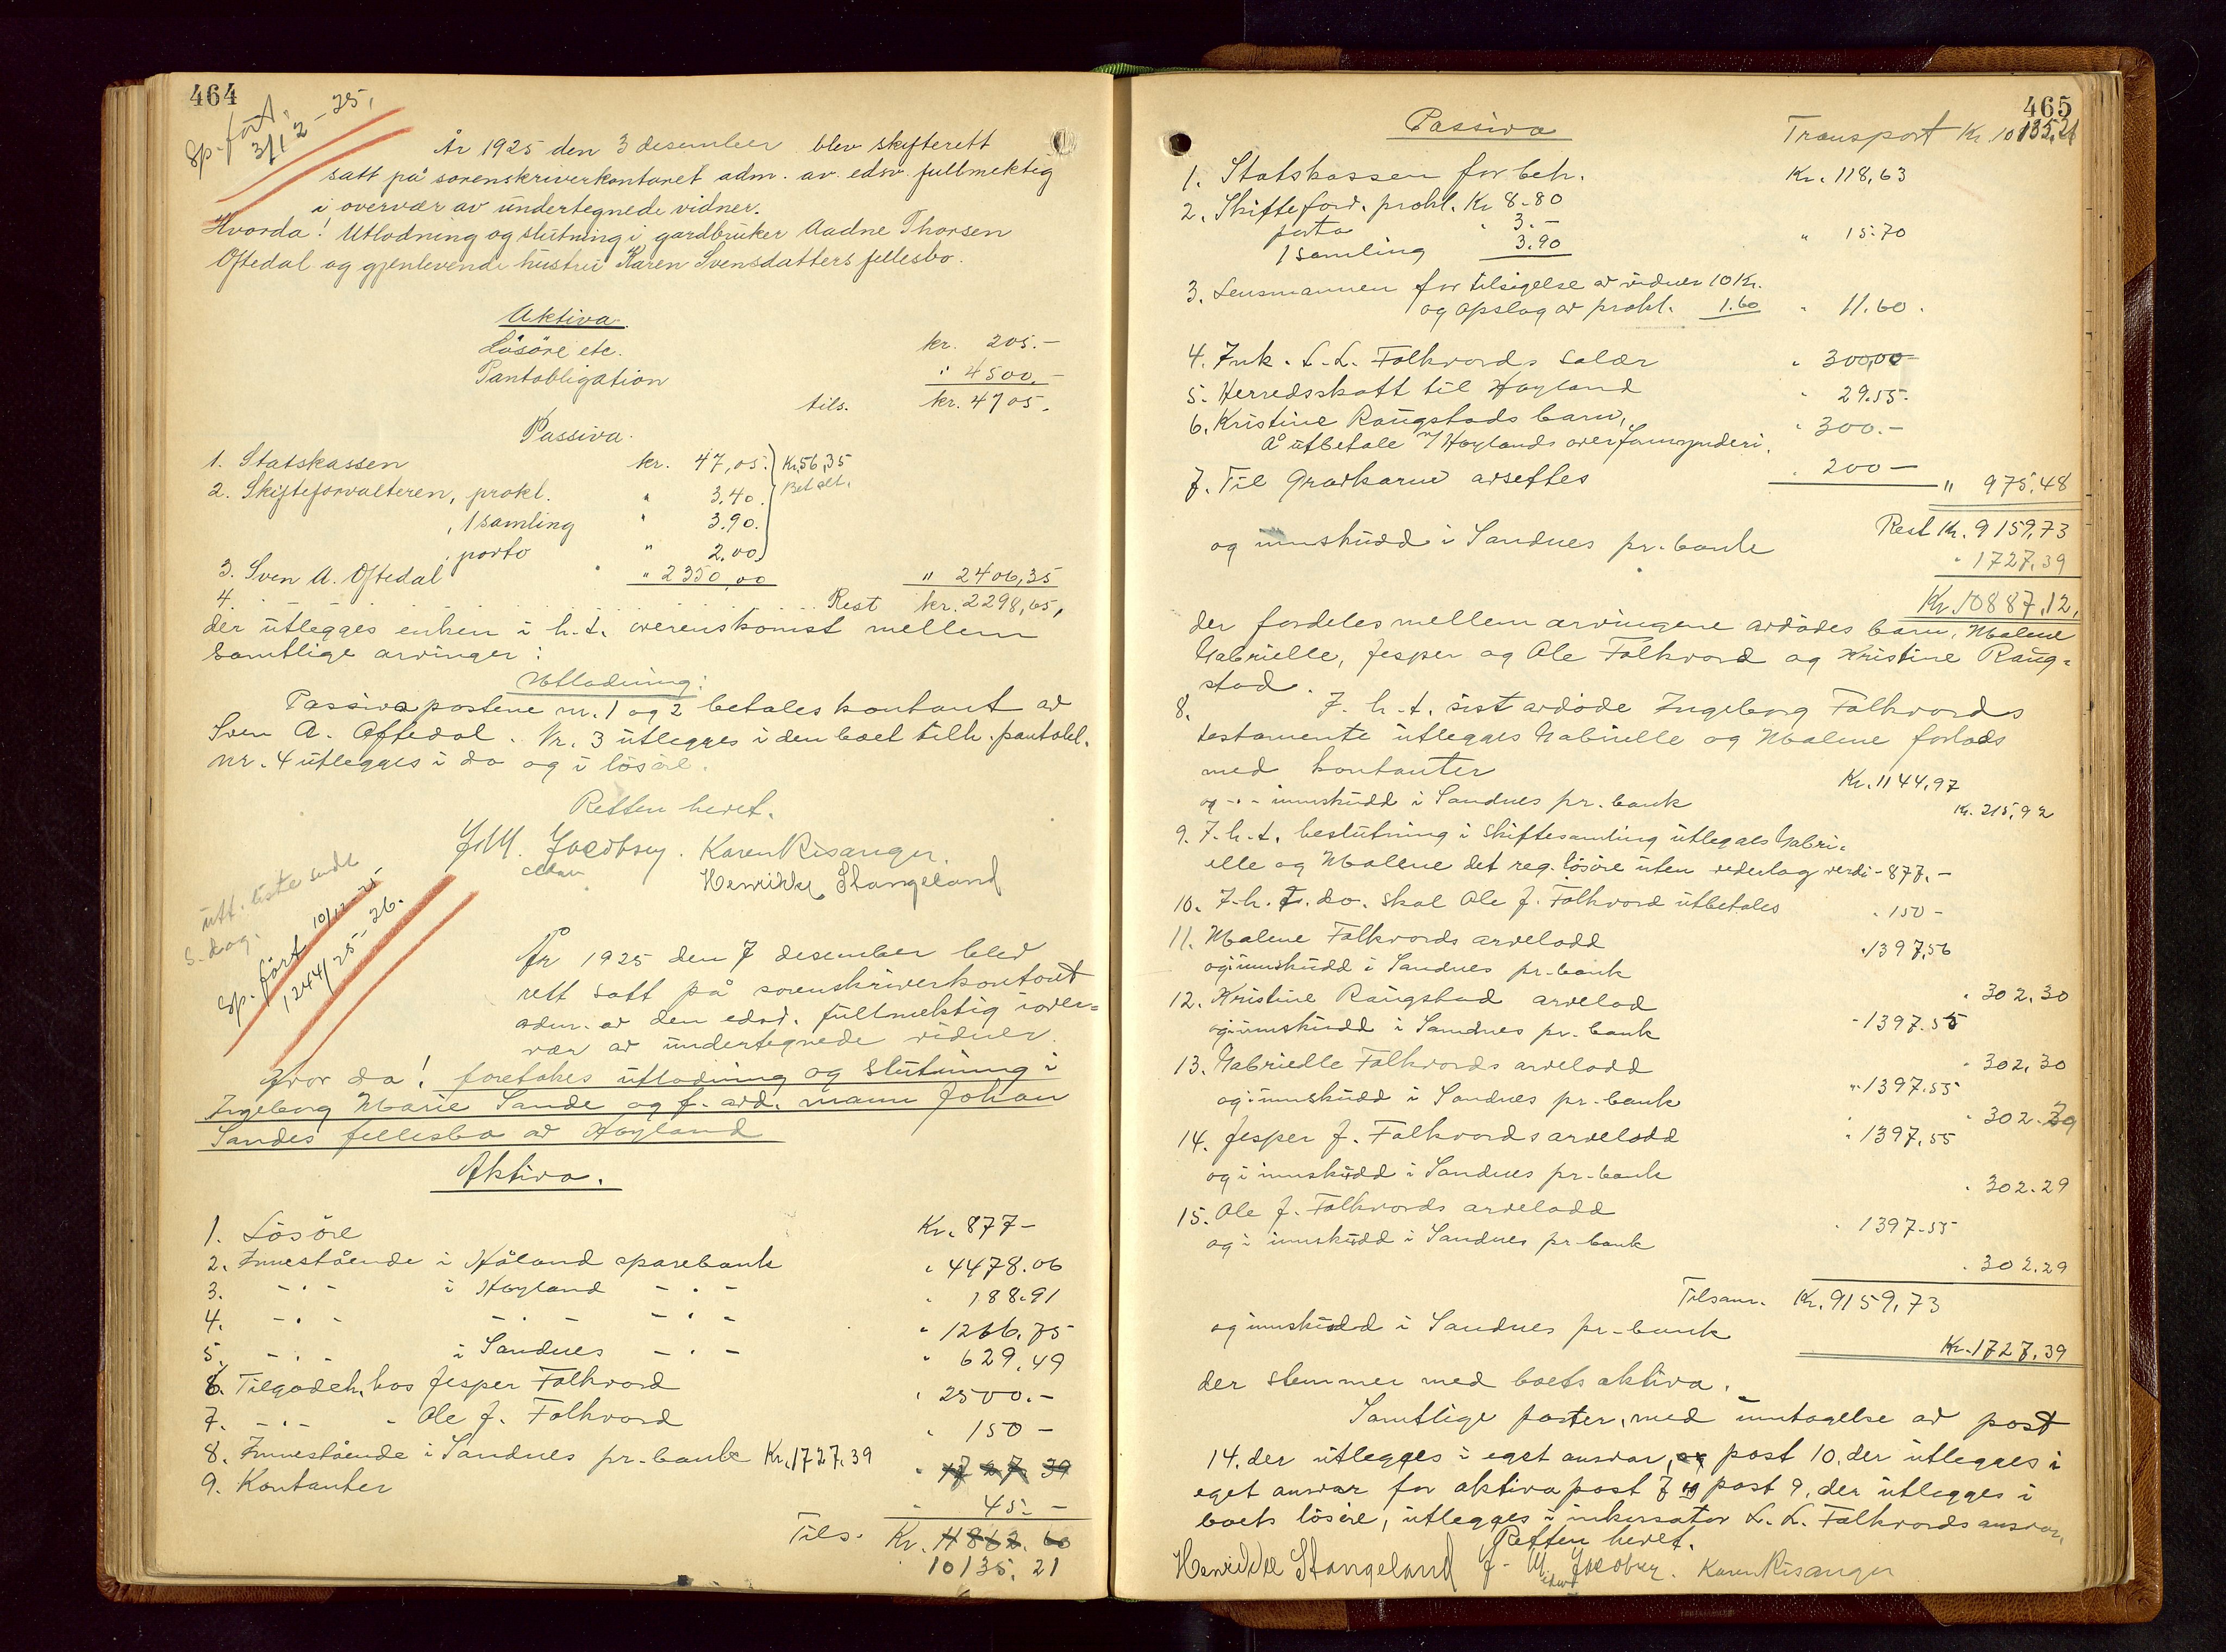 464
Sp. ført.
3/12-25,
År 1925 den 3 desember blev skifterett
satt på sorenskriverkontoret adm. av edsv. fullmektig
i overvær av undertegnede vidner.
Hvorda! Utlodning og slutning i gardbruker Aadne Thorsen
Oftedal og gjenlevende hustru Karen Svensdatters fellesbo.
Aktiva.
Løsøre etc. kr. 205.-
Pantobligation " 4500.-
tils. kr. 4705.
Passiva.
1. Statskassen kr. 47,05. Kr. 56,35
2. Skifteforvalteren, prokl. " 3.40. Betalt.
, 1 samling " 3.90.
, porto " 2.00
3. Sven A. Oftedal " 2350,00 " 2406,35
4. . . . . . Rest kr. 2298,65,
der utlegges enken i h.t. overenskomst mellem
samtlige arvinger:
Utlodning:
Passivapostene nr. 1 og 2 betales kontant av
Sven A. Oftedal. Nr. 3 utlegges i den boet tilh. pantobl.
nr. 4 utlegges i do og i løsøre.
Retten hevet.
J. M. Jacobsen. Karen Risanger.
edsv
Henrikke Stangeland
utt. liste sendt
s. dag.
Sp. ført 10/12-25
1244/25-26.
År 1925 den 7 desember blev
rett satt på sorenskriverkontoret
adm. av den edsv. fullmektig i over=
vær av undertegnede vidner.
Hvor da! foretokes utlodning og slutning i
Ingeborg Marie Sande og f. avd. mann Johan
Sandes fellesbo av Høyland
Aktiva.
1. Løsøre Kr. 877-
2. Innestående i Håland sparebank " 4478.06
3. - " - i Høyland - " - " 188.91
4. - " - - " - - " - " 1266.75
5. - " - i Sandnes - " - " 629,49
6. Tilgodeh. hos Jesper Folkvord " 2500.-
7. - " - " Ole J. Folkvord " 150-
8. Innestående i Sandnes pr.-bank Kr. 1727.39 " 1727.39
9. Kontanter " 45.-
Tils. Kr. 11862.60
10135.21
465
Passiva Transport Kr. 10135,21
1. Statskassen for beh. Kr. 118,63
2. Skifteforv. prokl. Kr 8-80
porto " 3.-
1 samling 3.90 " 15.70
3. Lensmannen for tilsigelse av vidner 10 Kr.
og opslag av prokl. 1.60 " 11.60.
4. Ink. L. L. Folkvords salær " 300,00
5. Herredsskatt til Høyland " 29.55-
6. Kristine Raugstads barn, " 300.-
Å utbetale Høylands overformynderi.
7. Til Gravkarm avsettes " 200- " 975,48
Rest Kr. 9159,73
og innskudd i Sandnes pr.-bank " 1727,39
Kr. 10887,12.
der fordeles mellem arvingene avdødes barn, Malene
Gabrielle, Jesper og Ole Folkvord og Kristine Raug=
stad.
8. I h.t. sist avdøde Ingeborg Folkvords
testamente utlegges Gabrielle og Malene forlods
med kontanter Kr. 1144,97
og - " - innskudd i Sandnes pr.-bank Kr. 215,92
9. I h.t. beslutning i skiftesamling utlegges Gabri=
elle og Malene det reg. løsøre uten vederlag verdi - 877.-
10. I h.t. do. skal Ole J. Folkvord utbetales " 150-
11. Malene Folkvords arvelodd " 1397,56
og i innskudd i Sandnes pr.-bank " 302,30
12. Kristine Raugstad arvelod - 1397.55
og i innskudd i Sandnes pr.-bank " 302,30
13. Gabrielle Folkvords arvelodd " 1397.55
og i innskudd i Sandnes pr.-bank " 302.29
14. Jesper J. Folkvords arvelodd " 1397,55
og i innskudd i Sandnes pr.-bank " 302.29
15. Ole J. Folkvords arvelodd " 1397-55
og i innskudd i Sandnes pr-bank " 302.29
Tilsam. Kr. 9159,73
og innskudd i Sandnes pr.-bank Kr. 1727,39
der stemmer med boets aktiva.
Samtlige poster, med unntagelse av post
14. der utlegges i eget ansvar, post 10. der utlegges i
eget ansvar for aktivapost 7 og post 9. der utlegges i
boets løsøre, utlegges i inkassator L. L. Folkvords ansvar.
Retten hevet.
Henrikke Stangeland J. M. Jacobsen. Karen Risanger
edsv